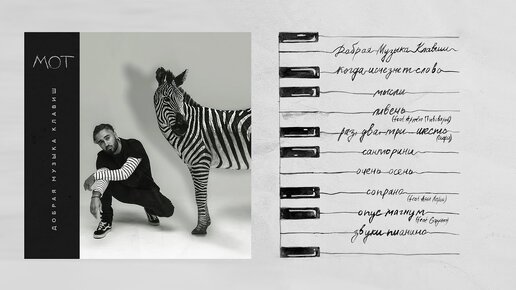 МОТ
ДОБРАЯ МУЗЫКА КЛАВИШ
Добрая Музыка Клавиш
когда исчезнет слово
мысли
ливень
(feat Артём Пивоваров)
раз два три шесть
санторини
очень осень
сопрано
(feat Ани Лорак)
опус магнум
звуки пианино